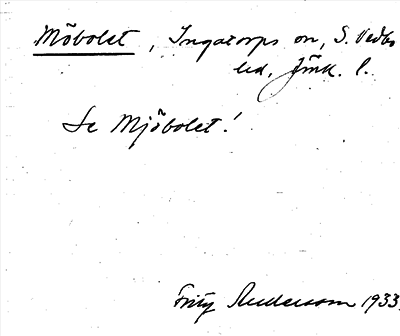 Möbolet, Ingatorps sn, S. Vedbo
hd, Jönk. l.
Se Mjöbolet!
Fritz Andersson 1933.